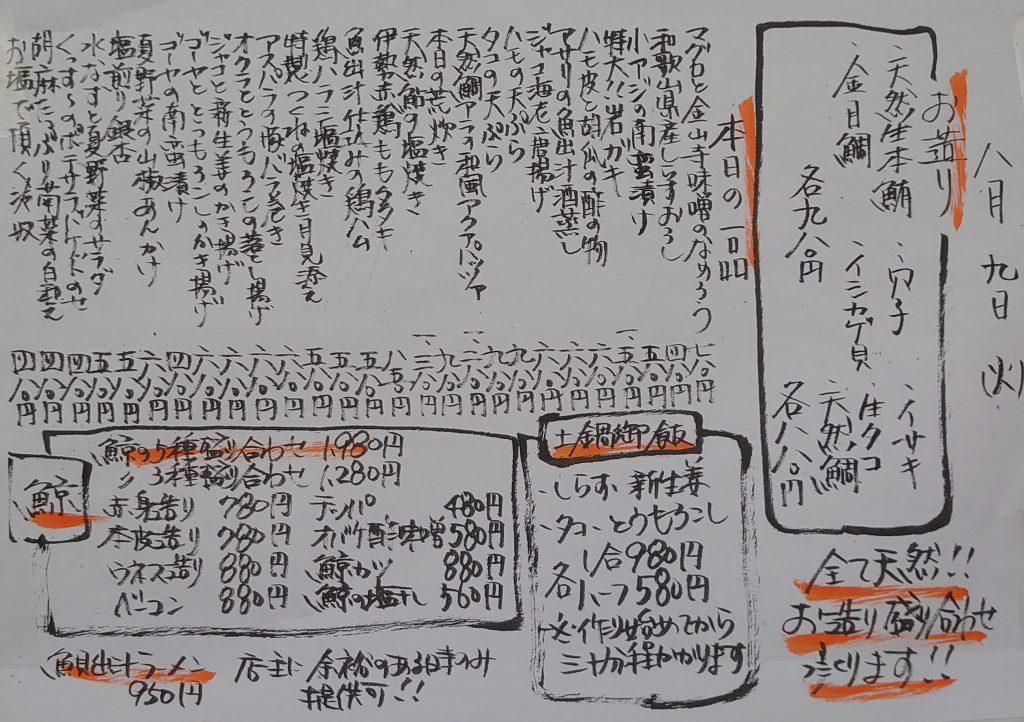 八月九日(火)
お造り
・天然生本鮪
・金目鯛
各九八〇円
・穴子
・イシカゲ貝
・イサキ
・生タコ
・天然鯛
各八八〇円
全て天然!!
お造り盛り合わせ
つくります!!
本日の一品
マグロと金山寺味噌のなめろう 七八〇円
和歌山県産しらすおろし 四八〇円
小アジの南蛮漬け 五八〇円
特大!!岩ガキ 一、五八〇円
ハモ皮と胡瓜の酢の物 六八〇円
アサリの魚出汁酒蒸し 六八〇円
ジャコ海老唐揚げ 六八〇円
ハモの天ぷら 九八〇円
タコの天ぷら 九八〇円
天然鯛アラの和風アクアパッツァ 一、二八〇円
本日の荒炊き 九八〇円
天然鮎の塩焼き 一、三八〇円
伊勢赤鶏ももタタキ 八五〇円
魚出汁仕込みの鶏ハム 五八〇円
鶏ハラミ塩焼き 五八〇円
特製つくねの塩焼き月見添え 五八〇円
アスパラの豚バラ巻き 六八〇円
オクラととうもろこしの落とし揚げ 六八〇円
ジャコと新生姜のかき揚げ 六八〇円
ゴーヤととうもろこしのかき揚げ 六八〇円
ゴーヤの南蛮漬け 四八〇円
夏野菜の山椒あんかけ 六八〇円
塩煎り銀杏 五八〇円
水なすと夏野菜のサラダ 五八〇円
くっすーのポテサラバケットのせ 四八〇円
胡麻たっぷり青菜の白和え 四八〇円
お塩で頂く冷奴 四八〇円
土鍋御飯
・しらす・新生姜
・タコ・とうもろこし
各 一合980円
ハーフ580円
※作り始めてから
三十分程かかります
鯨
鯨の5種盛り合わせ 1,980円
〃 3種盛り合わせ 1,280円
赤身造り 780円
本皮造り 780円
ウネス造り 880円
ベーコン 880円
テッパ 480円
オバケ酢味噌 580円
鯨カツ 880円
鯨の塩干し 560円
魚出汁ラーメン
950円
店主に余裕のある時のみ
提供可!!